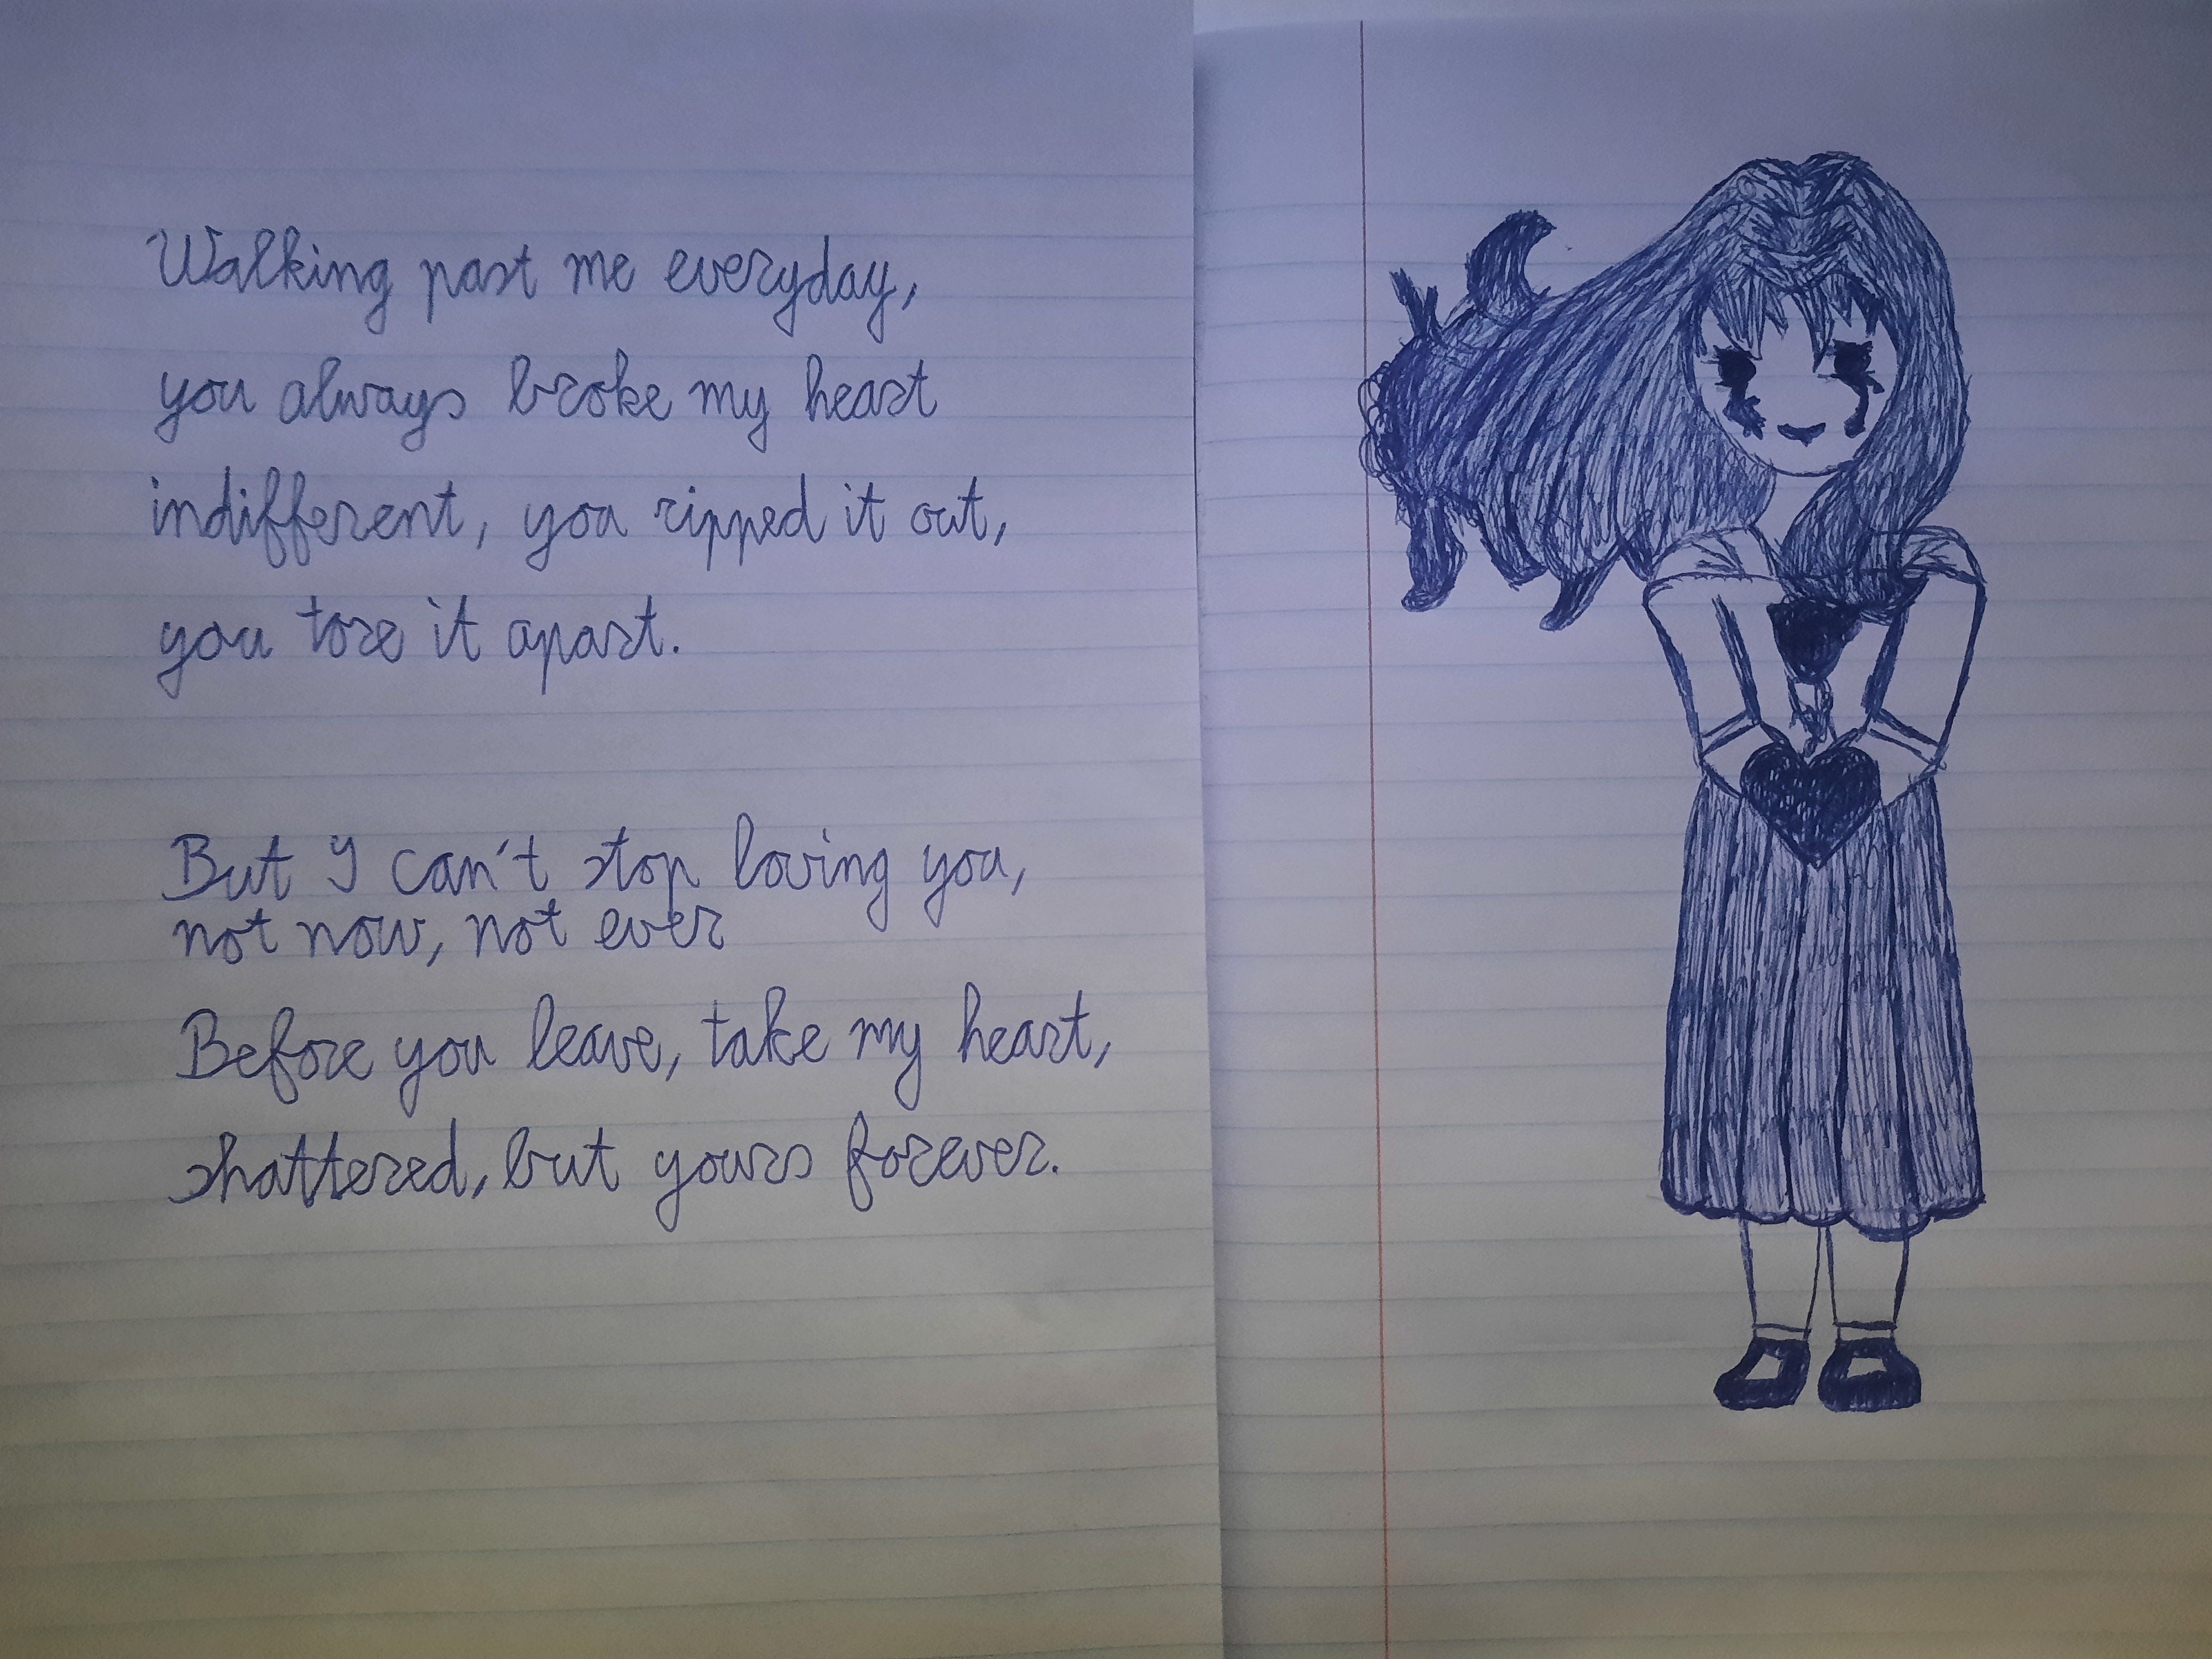 Walking past me everyday,
you always broke my heart
indifferent, you ripped it out,
you tore it apart.
But I can't stop loving you,
not now, not ever
Before you leave, take my heart,
shattered, but yours forever.